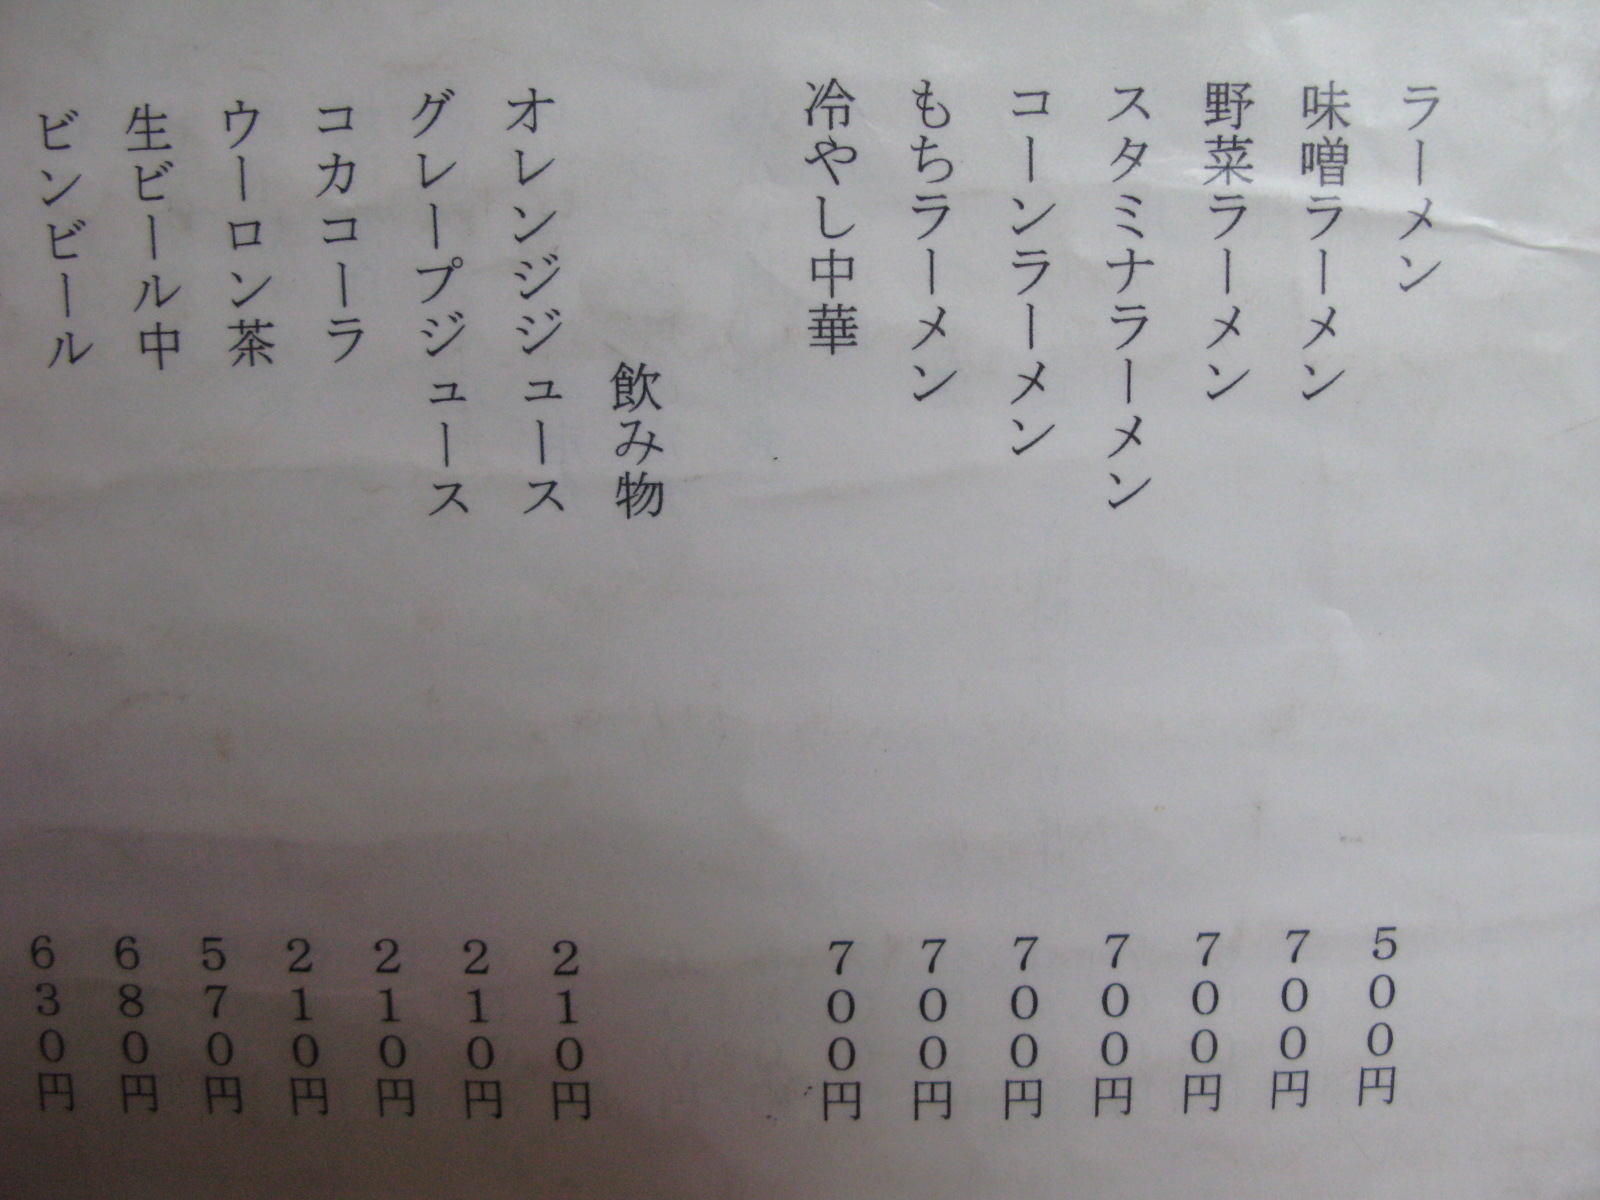 ラーメン　500円
味噌ラーメン　700円
野菜ラーメン　700円
スタミナラーメン　700円
コーンラーメン　700円
もちラーメン　700円
冷やし中華　700円
飲み物
オレンジジュース　210円
グレープジュース　210円
コカコーラ　210円
ウーロン茶　210円
生ビール中　570円
ビンビール　680円
630円